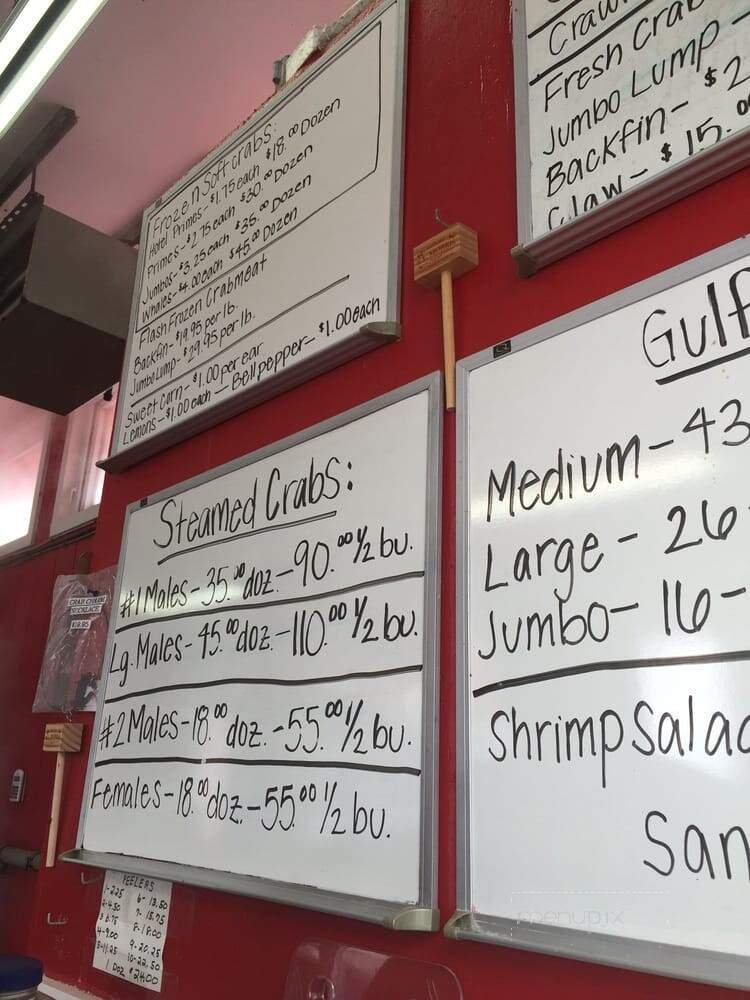 Frozen Soft crabs:
Hotel Primes - $1.75 each $18.00 Dozen
Primes - $2.75 each $30.00 Dozen
Jumbos - $3.25 each $35.00 Dozen
Whales - $4.00 each $45.00 Dozen
Flash Frozen Crabmeat
Backfin - $19.95 per lb.
Jumbo Lump - $29.95 per lb.
Sweet Corn - $1.00 per ear
Lemons - $1.00 each — Bell pepper - $1.00 each
Craw
Fresh Crab
Jumbo Lump -
Backfin - $2
Claw - $15.0
Steamed Crabs:
#1 Males - 35.00 doz. - 90.00 1/2 bu.
Lg. Males - 45.00 doz. - 110.00 1/2 bu.
#2 Males - 18.00 doz. - 55.00 1/2 bu.
Females - 18.00 doz. - 55.00 1/2 bu.
Gulf
Medium - 43
Large - 26
Jumbo - 16 -
Shrimp Salad
San
CRAB CHARM
NECKLACE
$19.95
PEELERS
1- 2.25 6- 13.50
2- 4.50 7- 15.75
3- 6.75 8- 18.00
4- 9.00 9- 20.25
5- 11.25 10- 22.50
1 DOZ $24.00
menupix